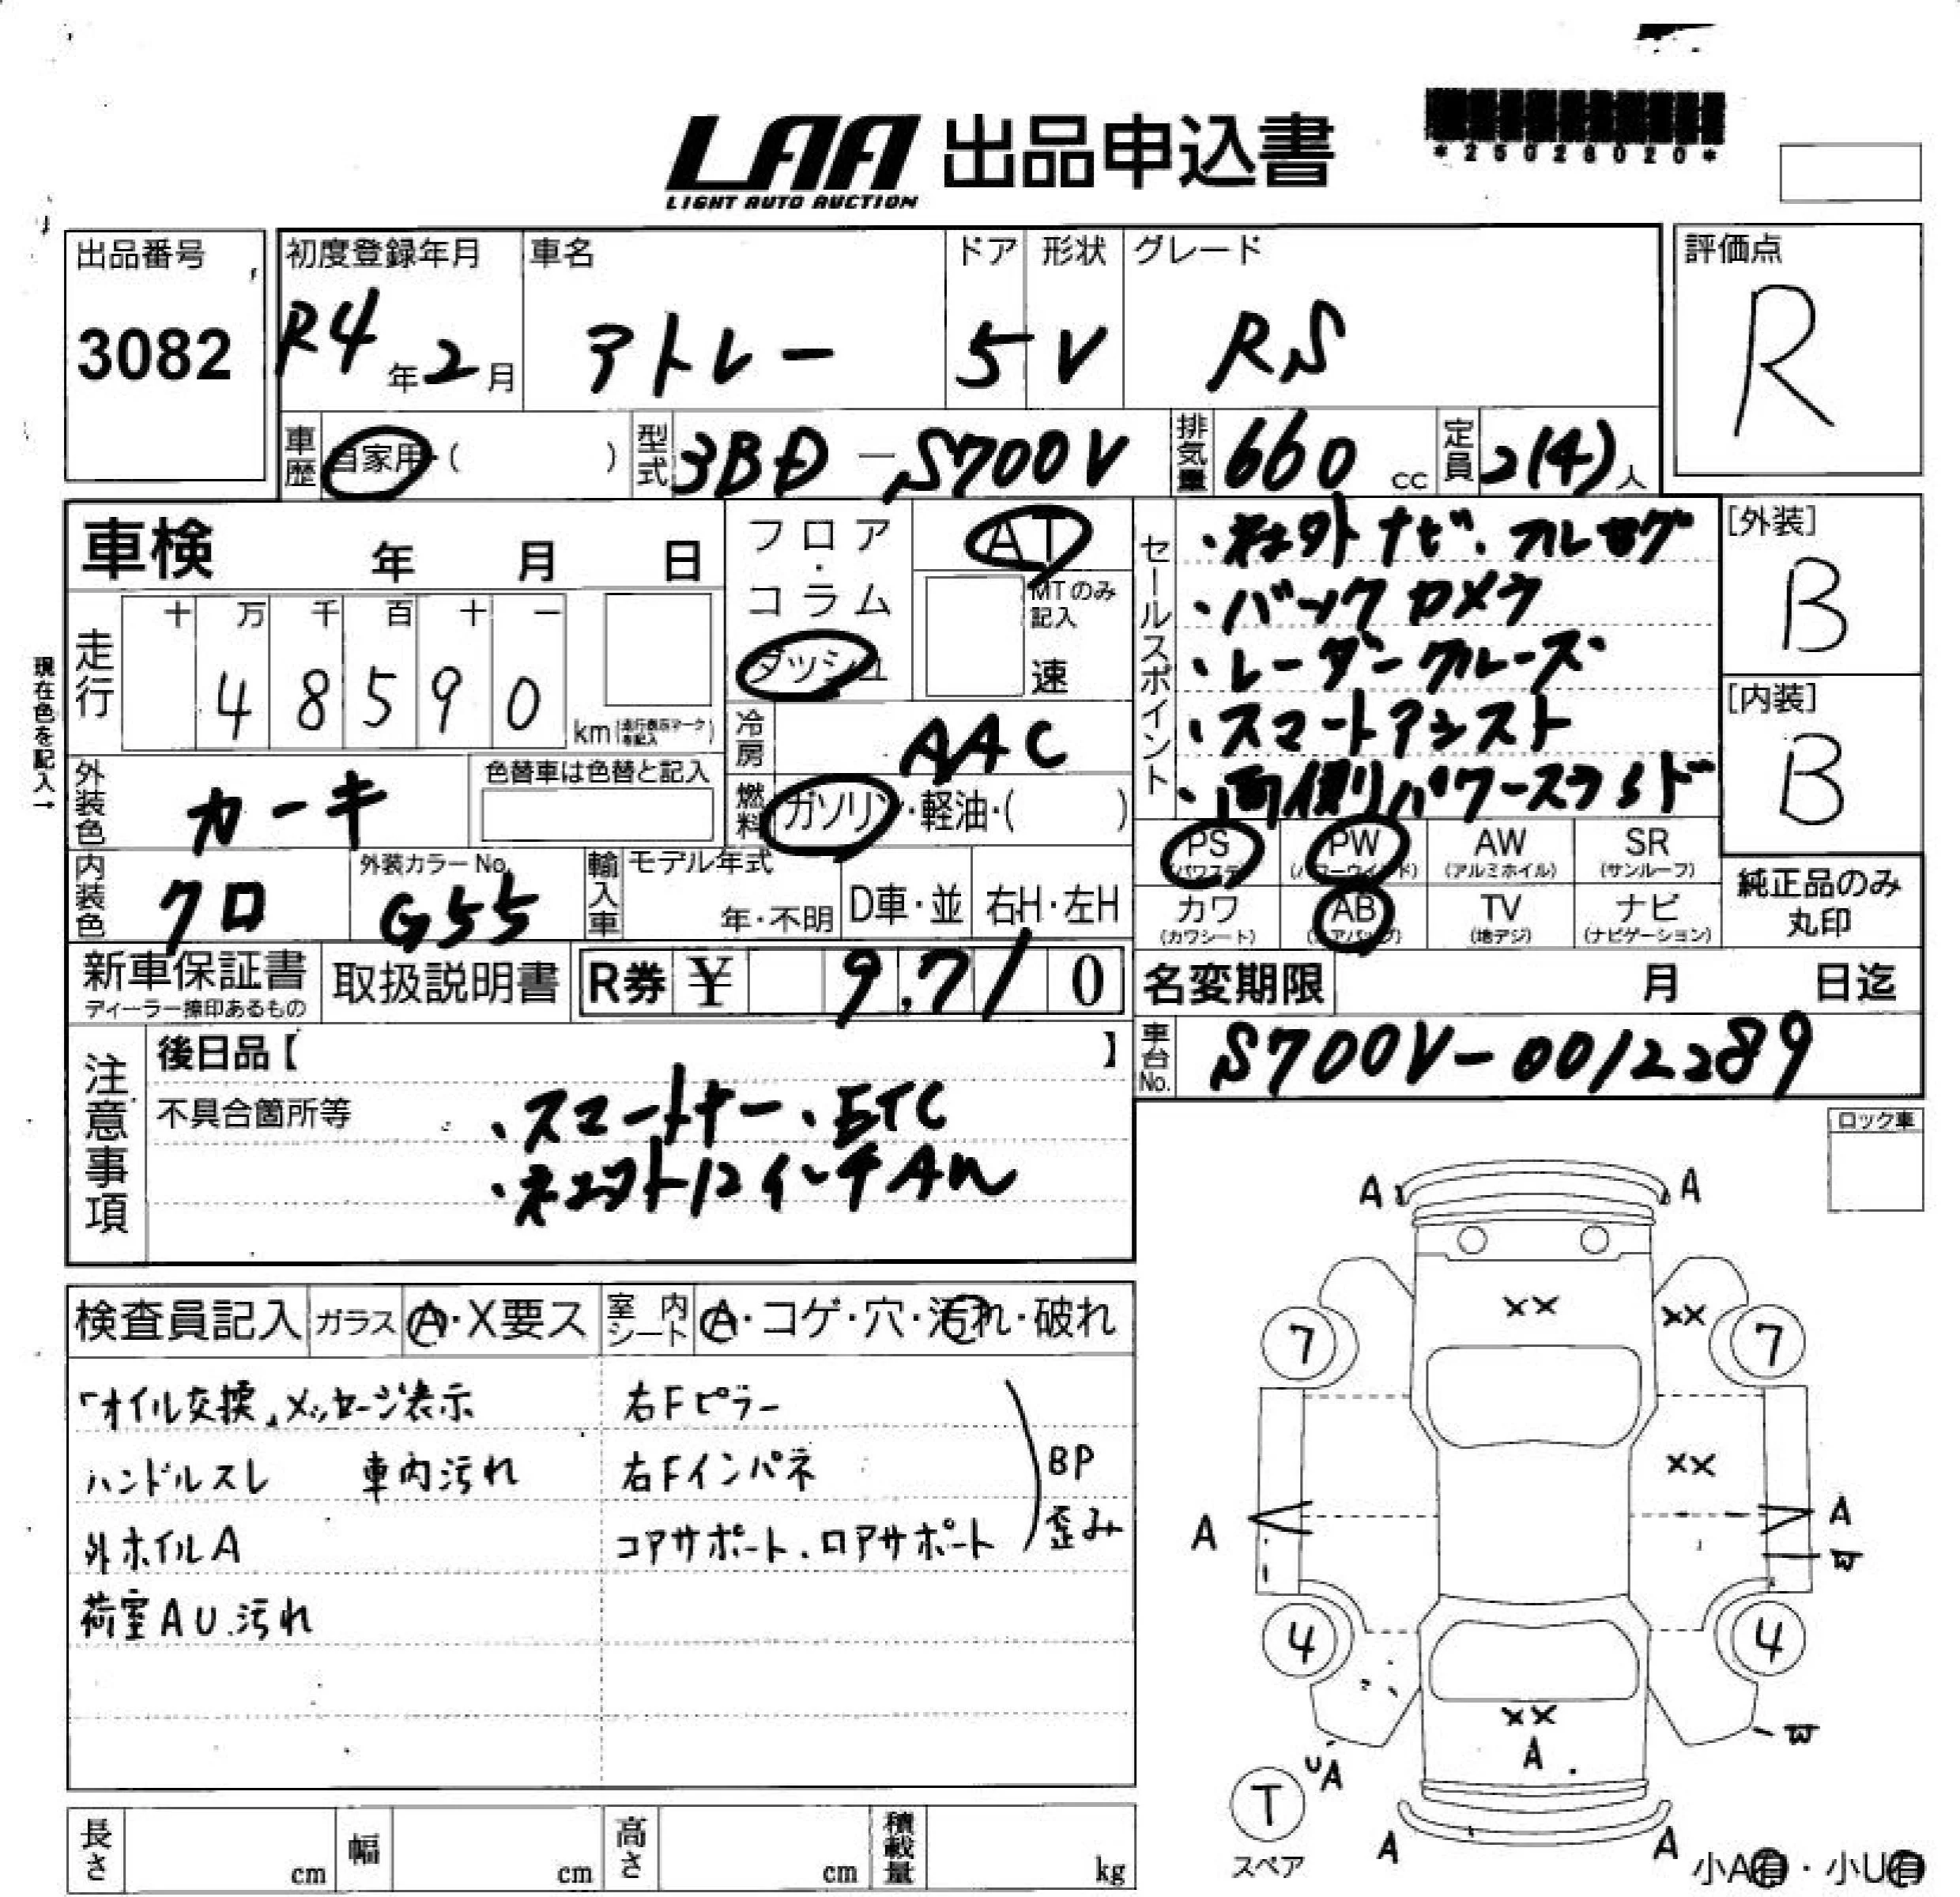 LAA 出品申込書
LIGHT AUTO AUCTION
*25028020*
出品番号 初度登録年月 車名 ドア 形状 グレード 評価点
3082 R4年2月 アトレー 5 V RS R
車歴 自家用・( ) 型式 3BD-S700V 排気量 660 cc 定員 2(4)人
車検 年 月 日
フロア・コラム ダッシュ
AT
MTのみ記入 速
セールスポイント
・社外ナビ.フルセグ
・バックカメラ
・レーダークルーズ
・スマートアシスト
・両側パワースライド
[外装]
B
[内装]
B
現在色を記入→
走行 十 万 千 百 十 一
4 8 5 9 0 km
冷房 AAC
外装色 カーキ 色替車は色替と記入
燃料 ガソリン・軽油・( )
PS PW AW SR
(パワステ) (パワーウインド) (アルミホイル) (サンルーフ)
カワ AB TV ナビ
(カワシート) (エアバッグ) (地デジ) (ナビゲーション)
純正品のみ
丸印
内装色 クロ 外装カラーNo. G55 輸入車 モデル年式 年・不明 D車・並 右H・左H
新車保証書 取扱説明書 R券 ¥ 9,710 名変期限 月 日迄
ディーラー捺印あるもの
車台No. S700V-0012289
注意事項
後日品【 】
不具合箇所等 ・スマートキー・ETC
・社外12インチAW
ロック車
検査員記入 ガラス A・X要ス 室内シート A・コゲ・穴・汚れ・破れ
「オイル交換」メッセージ表示 右Fピラー
ハンドルスレ 車内汚れ 右Fインパネ BP
外ホイルA コアサポート、ロアサポート 歪み
荷室AU.汚れ
A A
XX XX
7 7
XX
A A
W
4 4
XX
A
W
UA
T
スペア
A A
小A有・小U有
長さ cm 幅 cm 高さ cm 積載量 kg